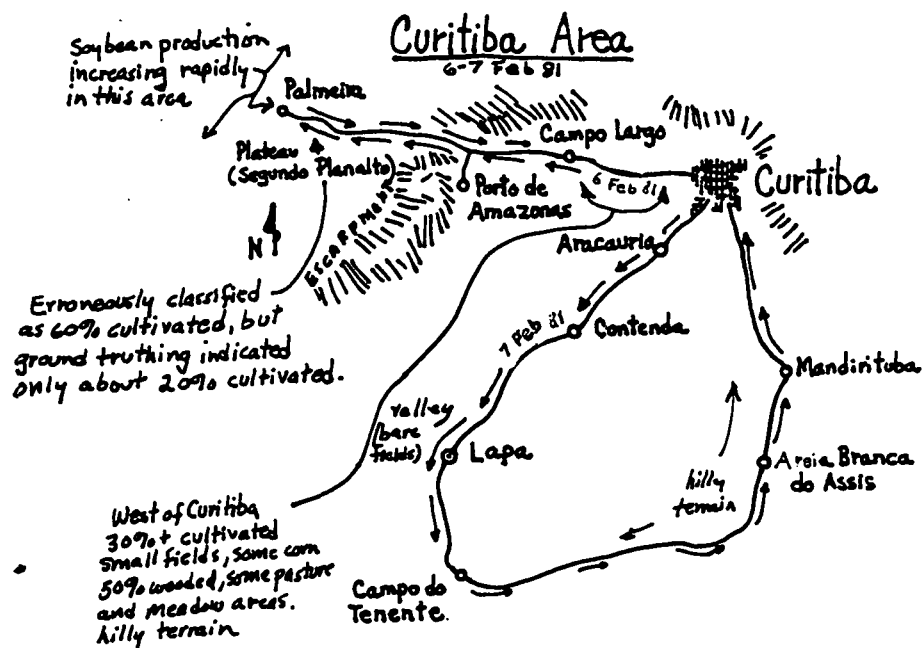 Curitiba Area
6-7 Feb 81
Soybean production
increasing rapidly
in this area
Palmeira
Plateau
(Segundo Planalto)
N
ESCARPMENT
Porto de
Amazonas
Campo Largo
6 Feb 81
Curitiba
Aracauria
Contenda
7 Feb 81
Erroneously classified
as 60% cultivated, but
ground truthing indicated
only about 20% cultivated.
valley
(bare
fields)
Lapa
Mandirituba
Areia Branca
do Assis
hilly
terrain
West of Curitiba
30%+ cultivated
small fields, some corn
50% wooded, some pasture
and meadow areas.
hilly terrain
Campo do
Tenente.